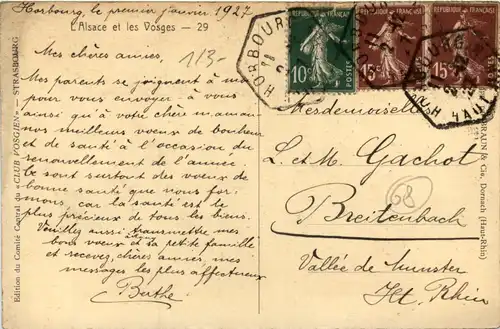 Horbourg le premier janvier 1927
L'Alsace et les Vosges — 29
113-
Mes chères amies,
Mes parents se joignent à moi
pour vous envoyer à vous
ainsi qu'à votre chère maman
nos meilleurs voeux de bonheur
et de santé à l'occasion du
renouvellement de l'année.
Ce sont surtout des voeux de
bonne santé que nous for-
mons, car la santé est le
plus précieux de tous les biens.
Veuillez aussi transmettre mes
bons voeux à et sa petite famille
et recevez, chères amies, mes
messages les plus affectueux
Berthe
Edition du Comité Central du «CLUB VOSGIEN» — STRASBOURG
REPUBLIQUE FRANÇAISE
10c
POSTES
REPUBLIQUE FRANÇAISE
15c
REPUBLIQUE FRANÇAISE
15c
HORBOURG
HAUT
Mesdemoiselles
L. et M. Gachot
68
Breitenbach
Vallée de Munster
Ht. Rhin
BRAUN & Cie, Dornach (Haut-Rhin)